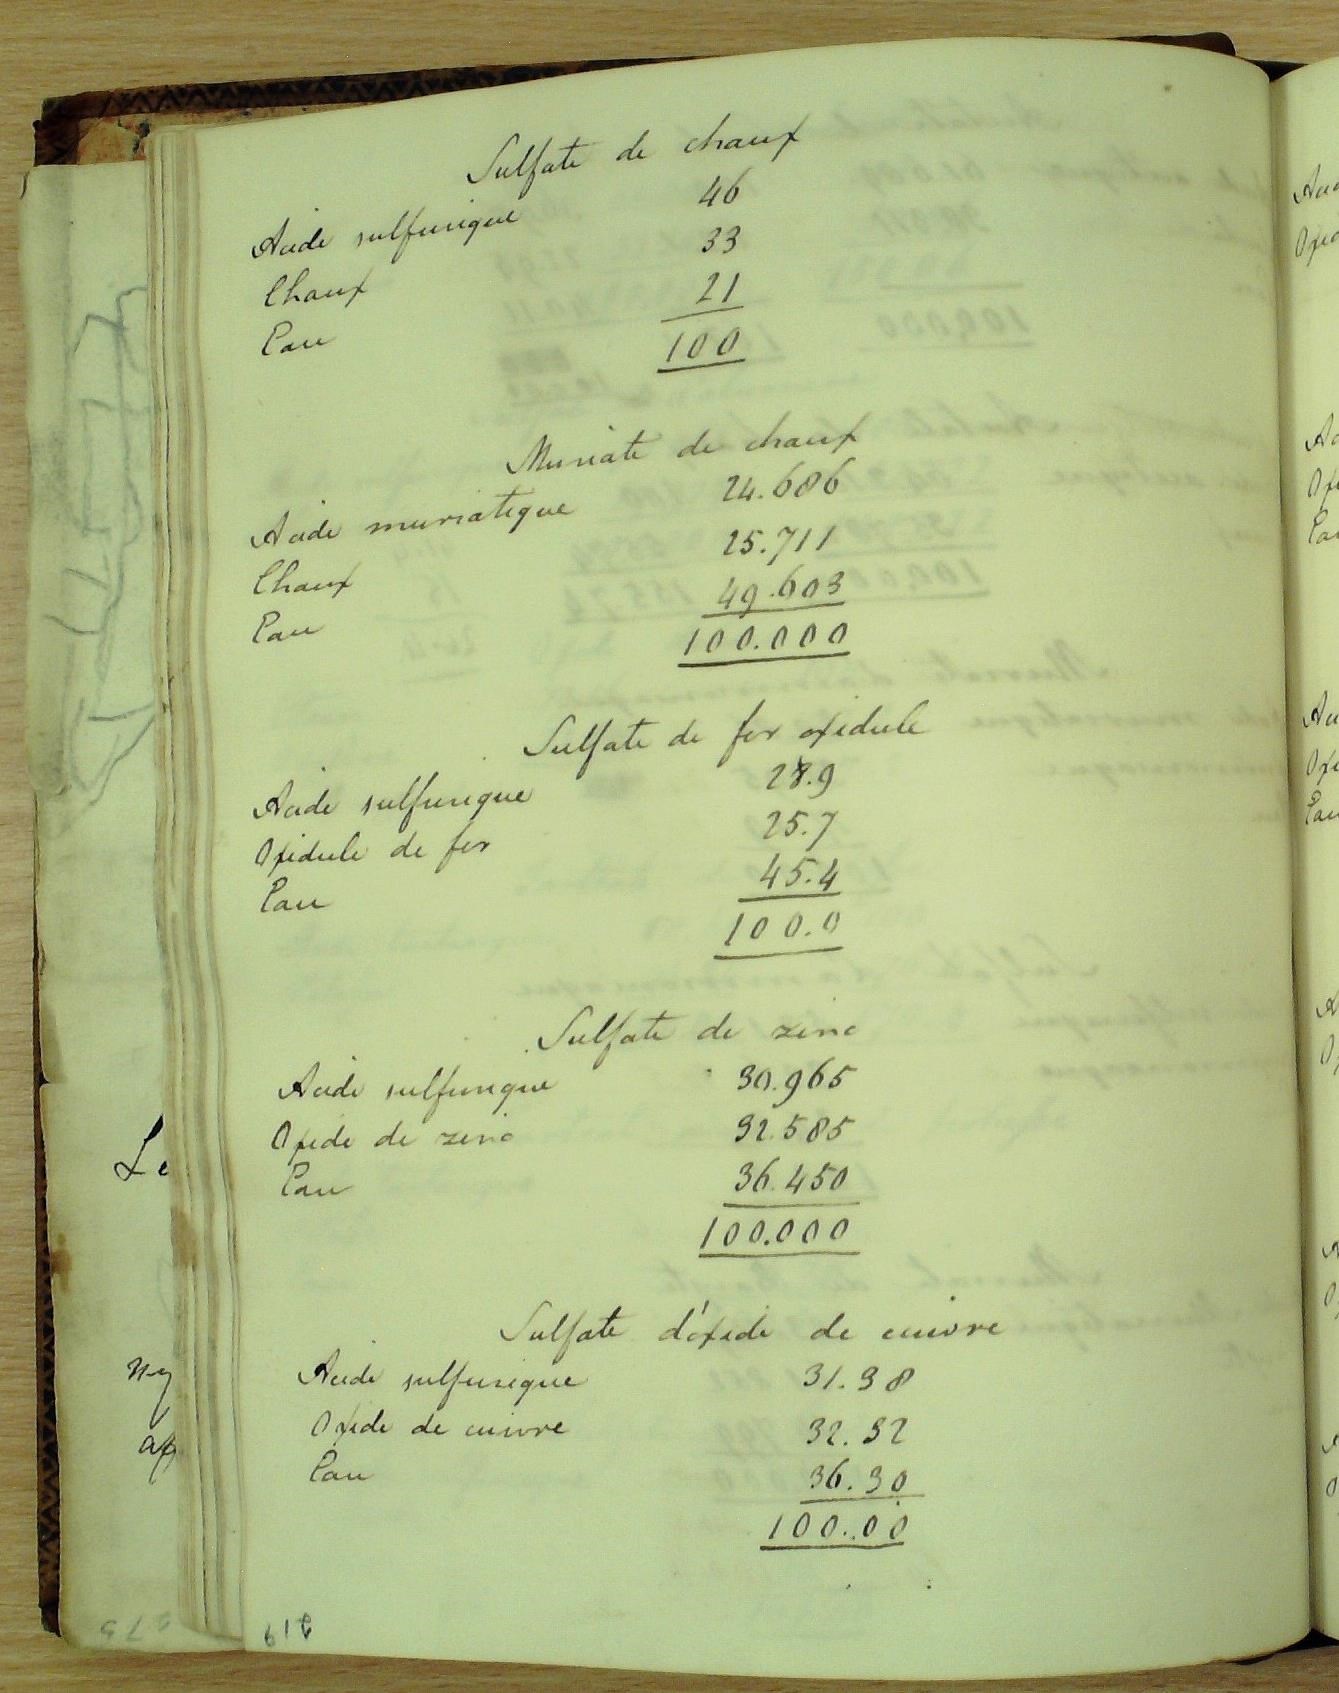 Sulfate de chaux
Acide sulfurique 46
Chaux 33
Eau 21
100
Muriate de chaux
Acide muriatique 24.686
Chaux 25.711
Eau 49.603
100.000
Sulfate de fer oxidule
Acide sulfurique 28.9
Oxidule de fer 25.7
Eau 45.4
100.0
Sulfate de zinc
Acide sulfurique 30.965
Oxide de zinc 32.585
Eau 36.450
100.000
Sulfate d'oxide de cuivre
Acide sulfurique 31.38
Oxide de cuivre 32.32
Eau 36.30
100.00